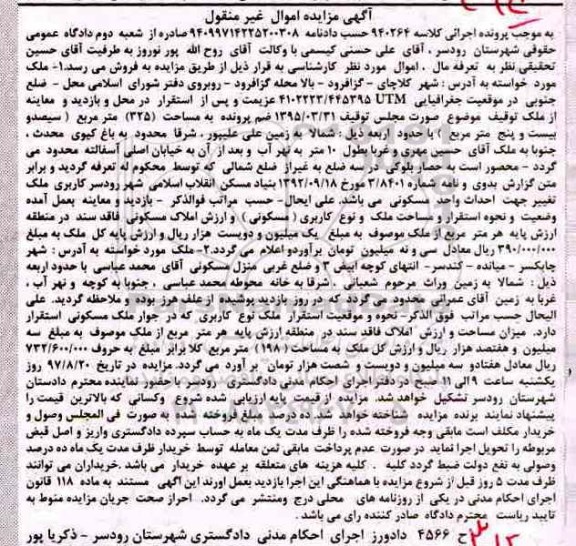 آگهی مزایده اموال غیر منقول
به موجب پرونده اجرائی کلاسه ۹۴۰۲۶۴ حسب دادنامه ۹۴۰۹۹۷۱۴۲۲۵۲۰۰۳۰۸ صادره از شعبه دوم دادگاه عمومی
حقوقی شهرستان رودسر ، آقای علی حسنی کیسمی با وکالت آقای روح الله پور نوروز به طرفیت آقای حسین
تحقیقی نظر به تعرفه مال ، اموال مورد نظر کارشناسی به قرار ذیل از طریق مزایده به فروش می رسد.۱- ملک
مورد خواسته به آدرس : شهر کلاچای – گزافرود – بالا محله گزافرود – روبروی دفتر شورای اسلامی محل – ضلع
جنوبی در موقعیت جغرافیایی UTM ۴۱۰۲۲۲۳/۴۴۵۳۹۵ عزیمت و پس از استقرار در محل و بازدید و معاینه
از ملک توقیف موضوع صورت مجلس توقیف ۱۳۹۵/۰۳/۳۱ ضم پرونده به مساحت (۳۲۵) متر مربع ( سیصدو
بیست و پنج متر مربع ) با حدود اربعه ذیل : شمالا به زمین علی علیپور ، شرقا محدود به باغ کیوی محدث ،
جنوبا به ملک آقای حسین مهری و غربا بطول ۱۰ متر به نهر آب و بعد از آن به خیابان اصلی آسفالته محدود می
گردد – محصور است به حصار بلوکی در سه ضلع به غیر از ضلع شمالی که توسط محکوم له تعرفه گردید و برابر
متن گزارش بدوی و نامه شماره ۳/۸۴۰۱ مورخ ۱۳۹۲/۰۹/۱۸ بنیاد مسکن انقلاب اسلامی شهر رودسر کاربری ملک
تغییر جهت احداث واحد مسکونی می باشد. علی ایحال- حسب مراتب فوالذکر – بازدید و معاینه بعمل آمده
وضعیت و نحوه استقرار و مساحت ملک و نوع کاربری ( مسکونی ) و ارزش املاک مسکونی فاقد سند در منطقه
ارزش پایه هر متر مربع از ملک موصوف به مبلغ یک میلیون و دویست هزار ریال و ارزش پایه کل ملک به مبلغ
۳۹۰/۰۰۰/۰۰۰ ریال معادل سی و نه میلیون تومان برآورد و اعلام می گردد.۲- ملک مورد خواسته به آدرس : شهر
چابکسر – میانده – کندسر- انتهای کوچه ابیض ۲ و ضلع غربی منزل مسکونی آقای محمد عباسی با حدود اربعه
ذیل : شمالا به زمین وراث مرحوم شعبانی ، شرقا به خانه محوطه محمد عباسی ، جنوبا به کوچه و نهر آب ،
غربا به زمین آقای عمرانی محدود می گردد که در روز بازدید پوشیده از علف هرز بوده و ملاحظه گردید. علی
الیحال حسب مراتب فوق الذکر- نحوه و موقعیت استقرار ملک نوع کاربری که در جوار ملک مسکونی استقرار
دارد. میزان مساحت و ارزش املاک فاقد سند در منطقه ارزش پایه هر متر مربع از ملک موصوف به مبلغ سه
میلیون و هفتصد هزار ریال و ارزش کل ملک به مساحت (۱۹۸) متر مربع کلا برابر مبلغ به حروف ۷۳۲/۶۰۰/۰۰۰
ریال معادل هفتادو سه میلیون و دویست و شصت هزار تومان بر آورد می گردد. مزایده در تاریخ ۹۷/۸/۲۰ روز
یکشنبه ساعت ۹ الی ۱۱ صبح در دفتر اجرای احکام مدنی دادگستری رودسر با حضور نماینده محترم دادستان
شهرستان رودسر تشکیل خواهد شد. مزایده از قیمت پایه ارزیابی شده شروع وکسانی که بالاترین قیمت را
پیشنهاد نمایند برنده مزایده شناخته خواهد شد. ده درصد از مبلغ فروخته شده به صورت فی المجلس وصول و
خریدار مکلف است مابقی وجه فروخته شده را ظرف مدت یک ماه به حساب سپرده دادگستری واریز و اصل قبض
مربوطه را تحویل اجرا نماید در صورت عدم پرداخت مابقی ثمن معامله توسط خریدار ظرف مدت یک ماه ده درصد
وصولی به نفع دولت ضبط گردد کلیه . کلیه هزینه های متعلقه بر عهده خریدار می باشد .خریداران می توانند
ظرف مدت ۵ روز قبل از شروع مزایده با هماهنگی این اجرا بازدید بعمل آورند این آگهی مستند به ماده ۱۱۸ قانون
اجرای احکام مدنی در یکی از روزنامه های محلی درج ومنتشر می گردد. احراز صحت جریان مزایده منوط به
تایید ریاست محترم دادگاه صادر کننده رای می باشد .
ح ۴۵۶۶ دادورز اجرای احکام مدنی دادگستری شهرستان رودسر – ذکریا پور